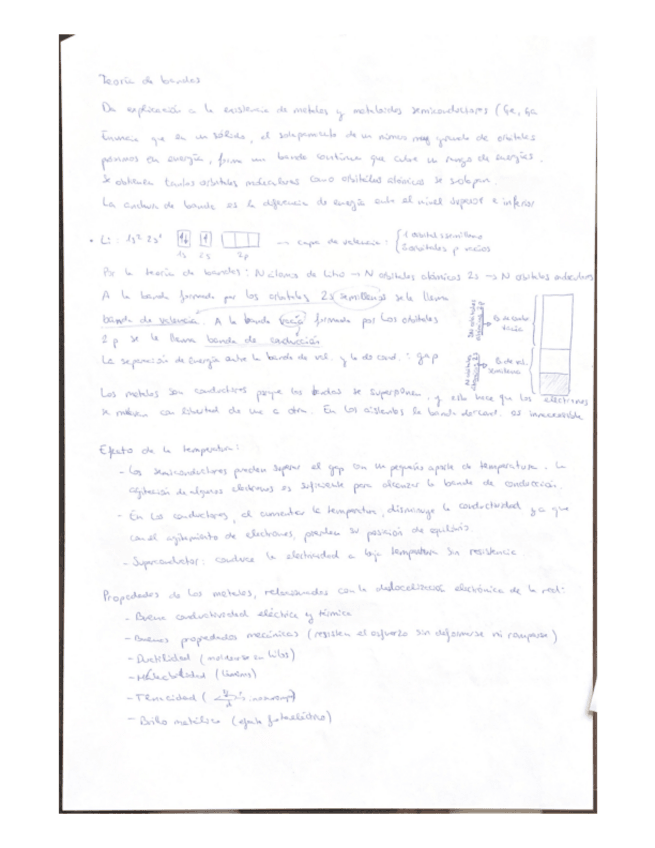 Teoría de bandas
Da explicación a la existencia de metales y metaloides semiconductores (Ge, Ga
Enuncia que en un sólido, el solapamiento de un número muy grande de orbitales
próximos en energía, forma una banda continua que cubre un rango de energías.
Se obtienen tantos orbitales moleculares como orbitales atómicos se solapan
La anchura de banda es la diferencia de energía entre el nivel superior e inferior
• Li: 1s² 2s¹ → capa de valencia: { 1 orbital s semilleno
3 orbitales p vacíos
1s 2s 2p
Por la teoría de bandas: N átomos de Litio → N orbitales atómicos 2s → N orbitales moleculares
A la banda formada por los orbitales 2s semillenos se le llama
banda de valencia. A la banda vacía formada por los orbitales
2p se le llama banda de conducción
La separación de energía entre la banda de val. y la de cond.: gap
Los metales son conductores porque las bandas se superponen, y esto hace que los electrones
se muevan con libertad de una a otra. En los aislantes la banda de cond. es inaccesible.
Efecto de la temperatura:
- Los semiconductores pueden superar el gap con un pequeño aporte de temperatura. La
agitación de algunos electrones es suficiente para alcanzar la banda de conducción.
- En los conductores, al aumentar la temperatura, disminuye la conductividad ya que
con el agitamiento de electrones, pierden su posición de equilibrio.
- Superconductor: conduce la electricidad a baja temperatura sin resistencia
Propiedades de los metales, relacionadas con la deslocalización electrónica de la red:
- Buena conductividad eléctrica y térmica
- Buenas propiedades mecánicas (resisten el esfuerzo sin deformarse ni romperse)
- Ductilidad (moldearse en hilos)
- Maleabilidad (láminas)
- Tenacidad
- Brillo metálico (efecto fotoeléctrico)